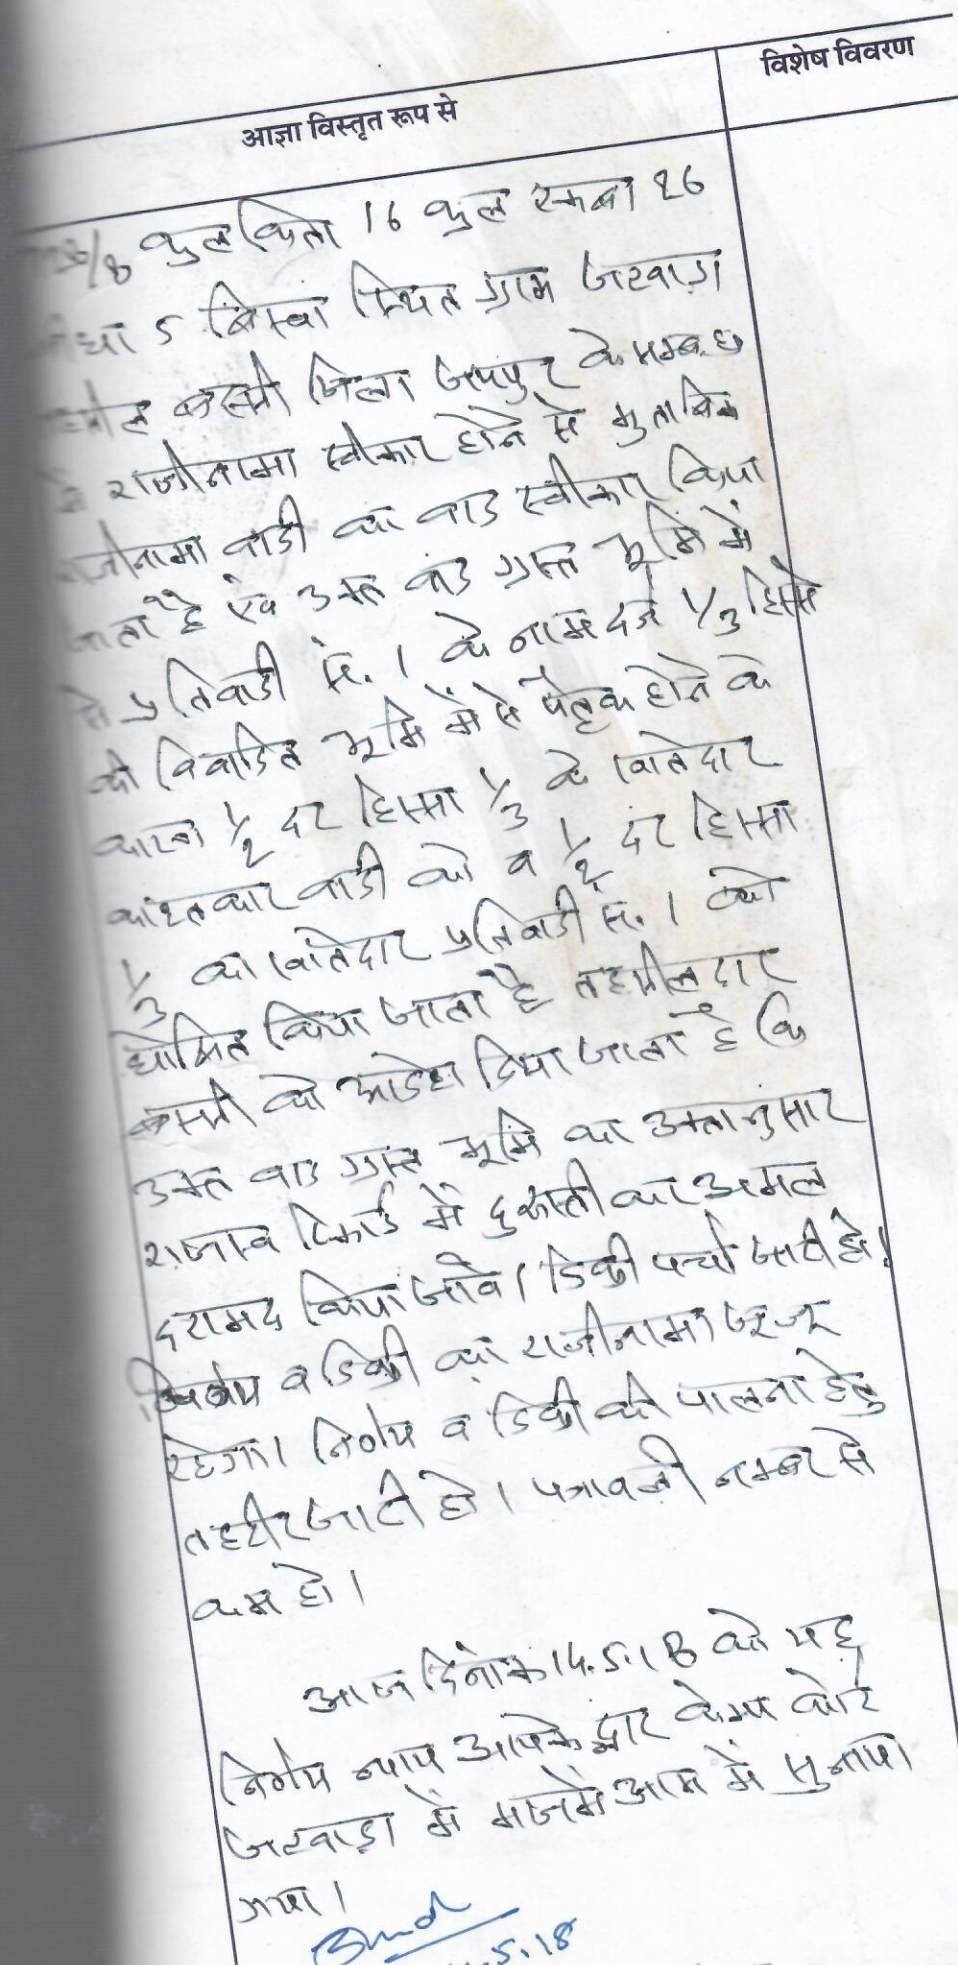 विशेष विवरण
आज्ञा विस्तृत रूप से
/8 कुल किता 16 कुल रकबा 26
बीघा 5 बिस्वा स्थित ग्राम जटवाड़ा
तहसील बस्सी जिला जयपुर के सम्बन्ध
में राजीनामा स्वीकार होने से मुताबिक
राजीनामा वादी का वाद स्वीकार किया
जाता है एवं उक्त वाद ग्रस्त भूमि में
से प्रतिवादी सं. 1 के नाम दर्ज 1/3 हिस्से
की विवादित भूमि में से पैतृक होने के
कारण 1/2 दर हिस्सा 1/3 के खातेदार
काश्तकार वादी को व 1/2 दर हिस्सा
1/3 का खातेदार प्रतिवादी सं. 1 को
घोषित किया जाता है तहसीलदार
बस्सी को आदेश दिया जाता है कि
उक्त वाद ग्रस्त भूमि का उक्तानुसार
राजस्व रिकार्ड में दुरूस्ती का अमल
दरामद किया जावे। डिक्री पर्चा जारी हो।
निर्णय व डिक्री का राजीनामा जुज
रहेगा। निर्णय व डिक्री की पालना हेतु
तहरीर जारी हो। पत्रावली नम्बर से
कम हो।
आज दिनांक 14.5.18 को यह
निर्णय न्याय आपके द्वार केम्प कोर्ट
जटवाड़ा में मजमेंआम में सुनाया
गया।
.5.18